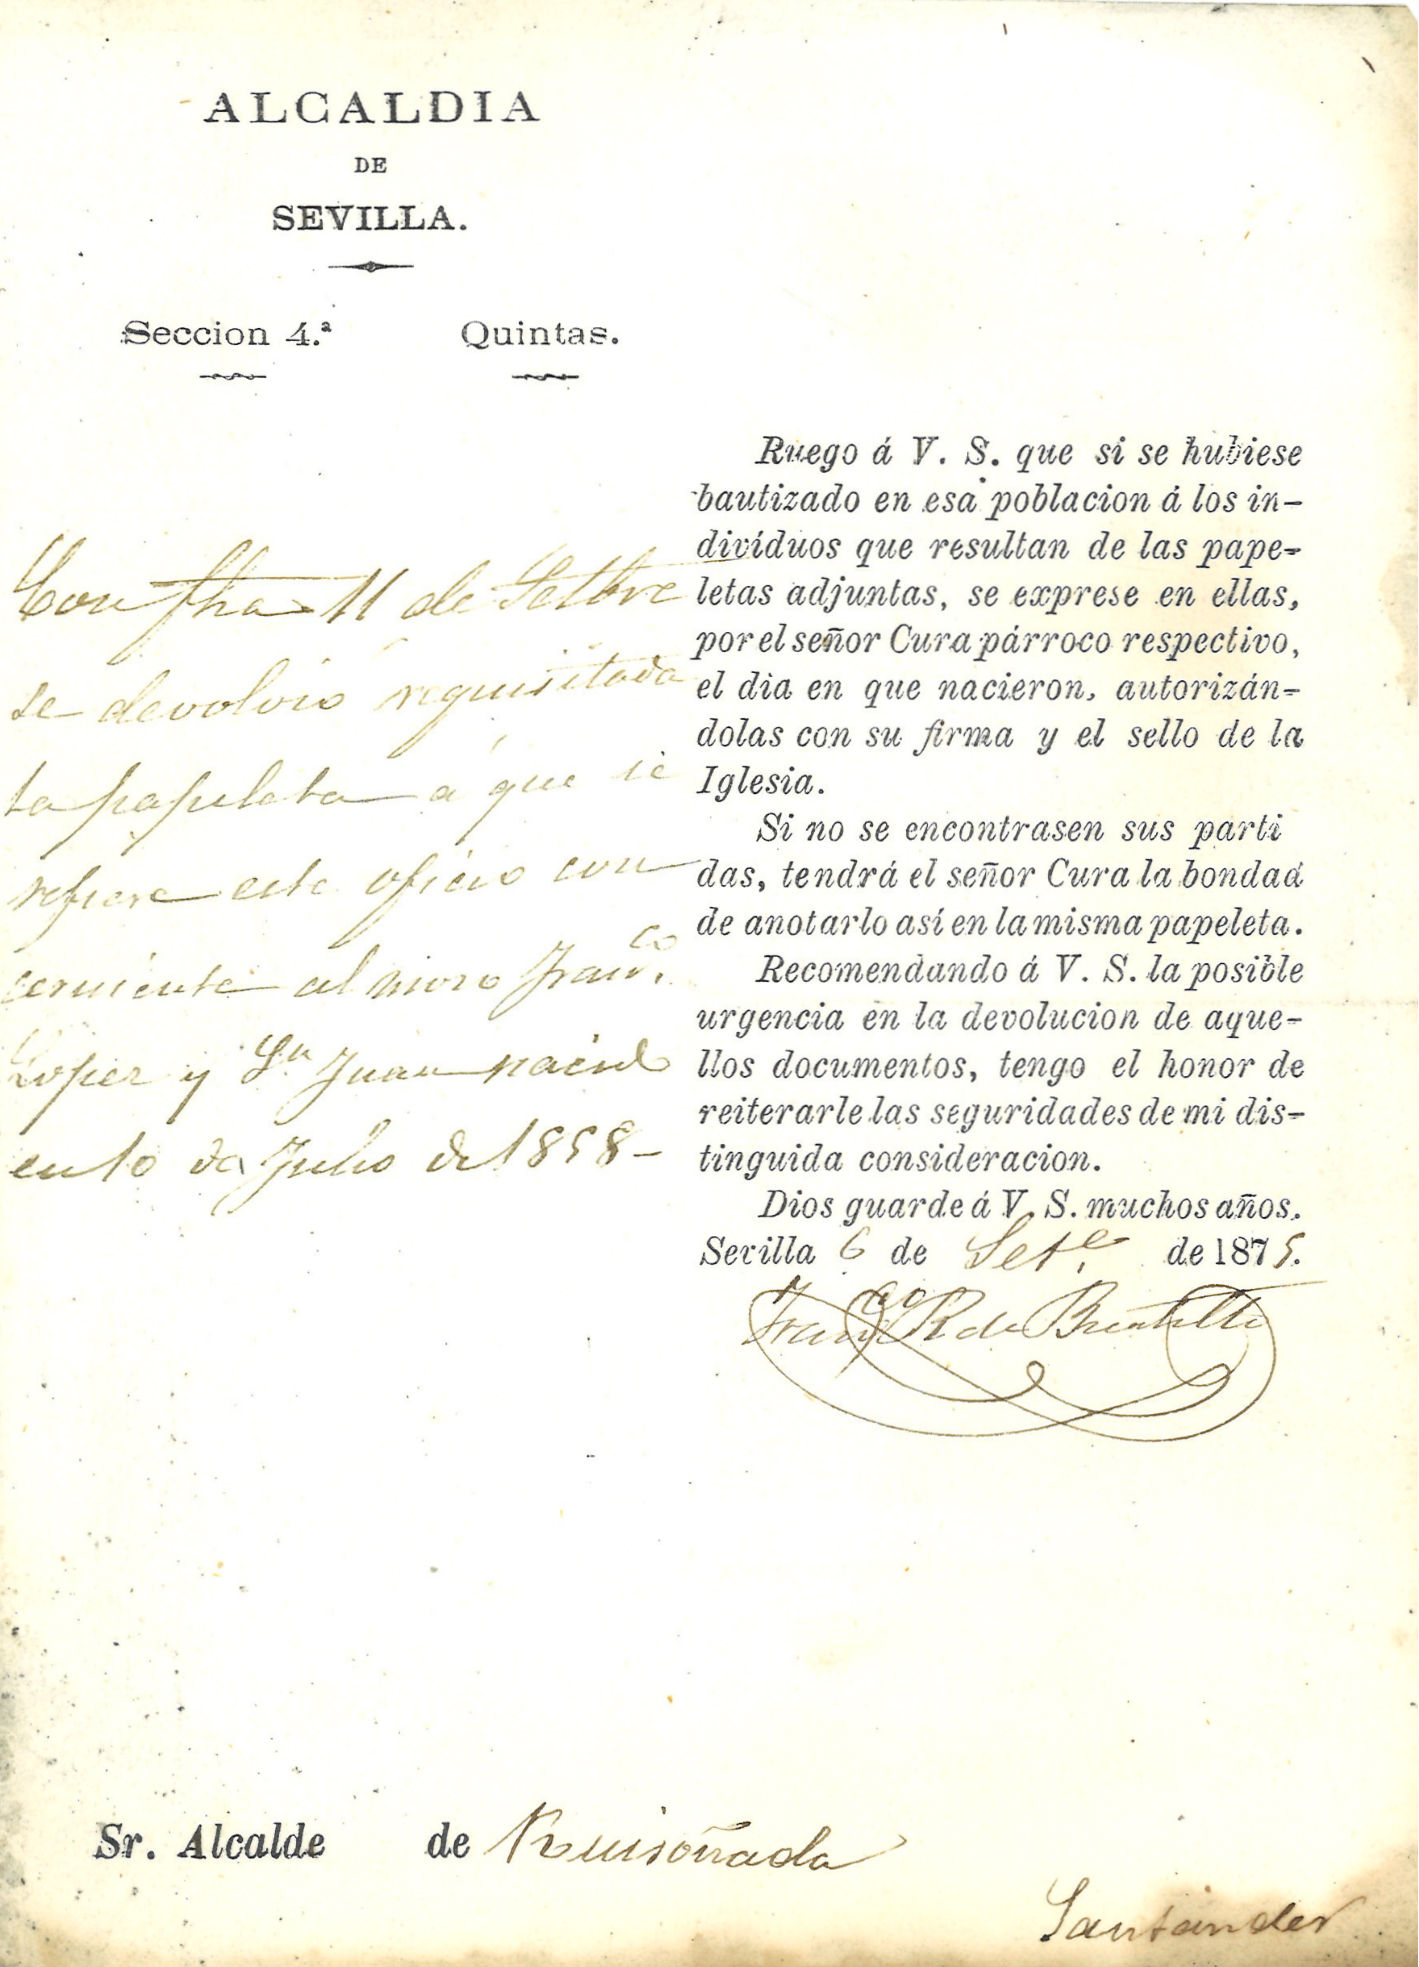 ALCALDIA
DE
SEVILLA.
Seccion 4.ª Quintas.
Con fha 11 de Setbre
se devolvió requisitada
la papeleta á que se
refiere este oficio con
cerniente al mozo Franco.
Lopez y Sn Juan nacid
en 10 de Julio de 1858-
Ruego á V. S. que si se hubiese
bautizado en esa poblacion á los in-
divíduos que resultan de las pape-
letas adjuntas, se exprese en ellas,
por el señor Cura párroco respectivo,
el dia en que nacieron, autorizán-
dolas con su firma y el sello de la
Iglesia.
Si no se encontrasen sus parti
das, tendrá el señor Cura la bondad
de anotarlo así en la misma papeleta.
Recomendando á V. S. la posible
urgencia en la devolucion de aque-
llos documentos, tengo el honor de
reiterarle las seguridades de mi dis-
tinguida consideracion.
Dios guarde á V. S. muchos años.
Sevilla 6 de Sete. de 1875.
Franco R de
Sr. Alcalde de Ruiseñada
Santander